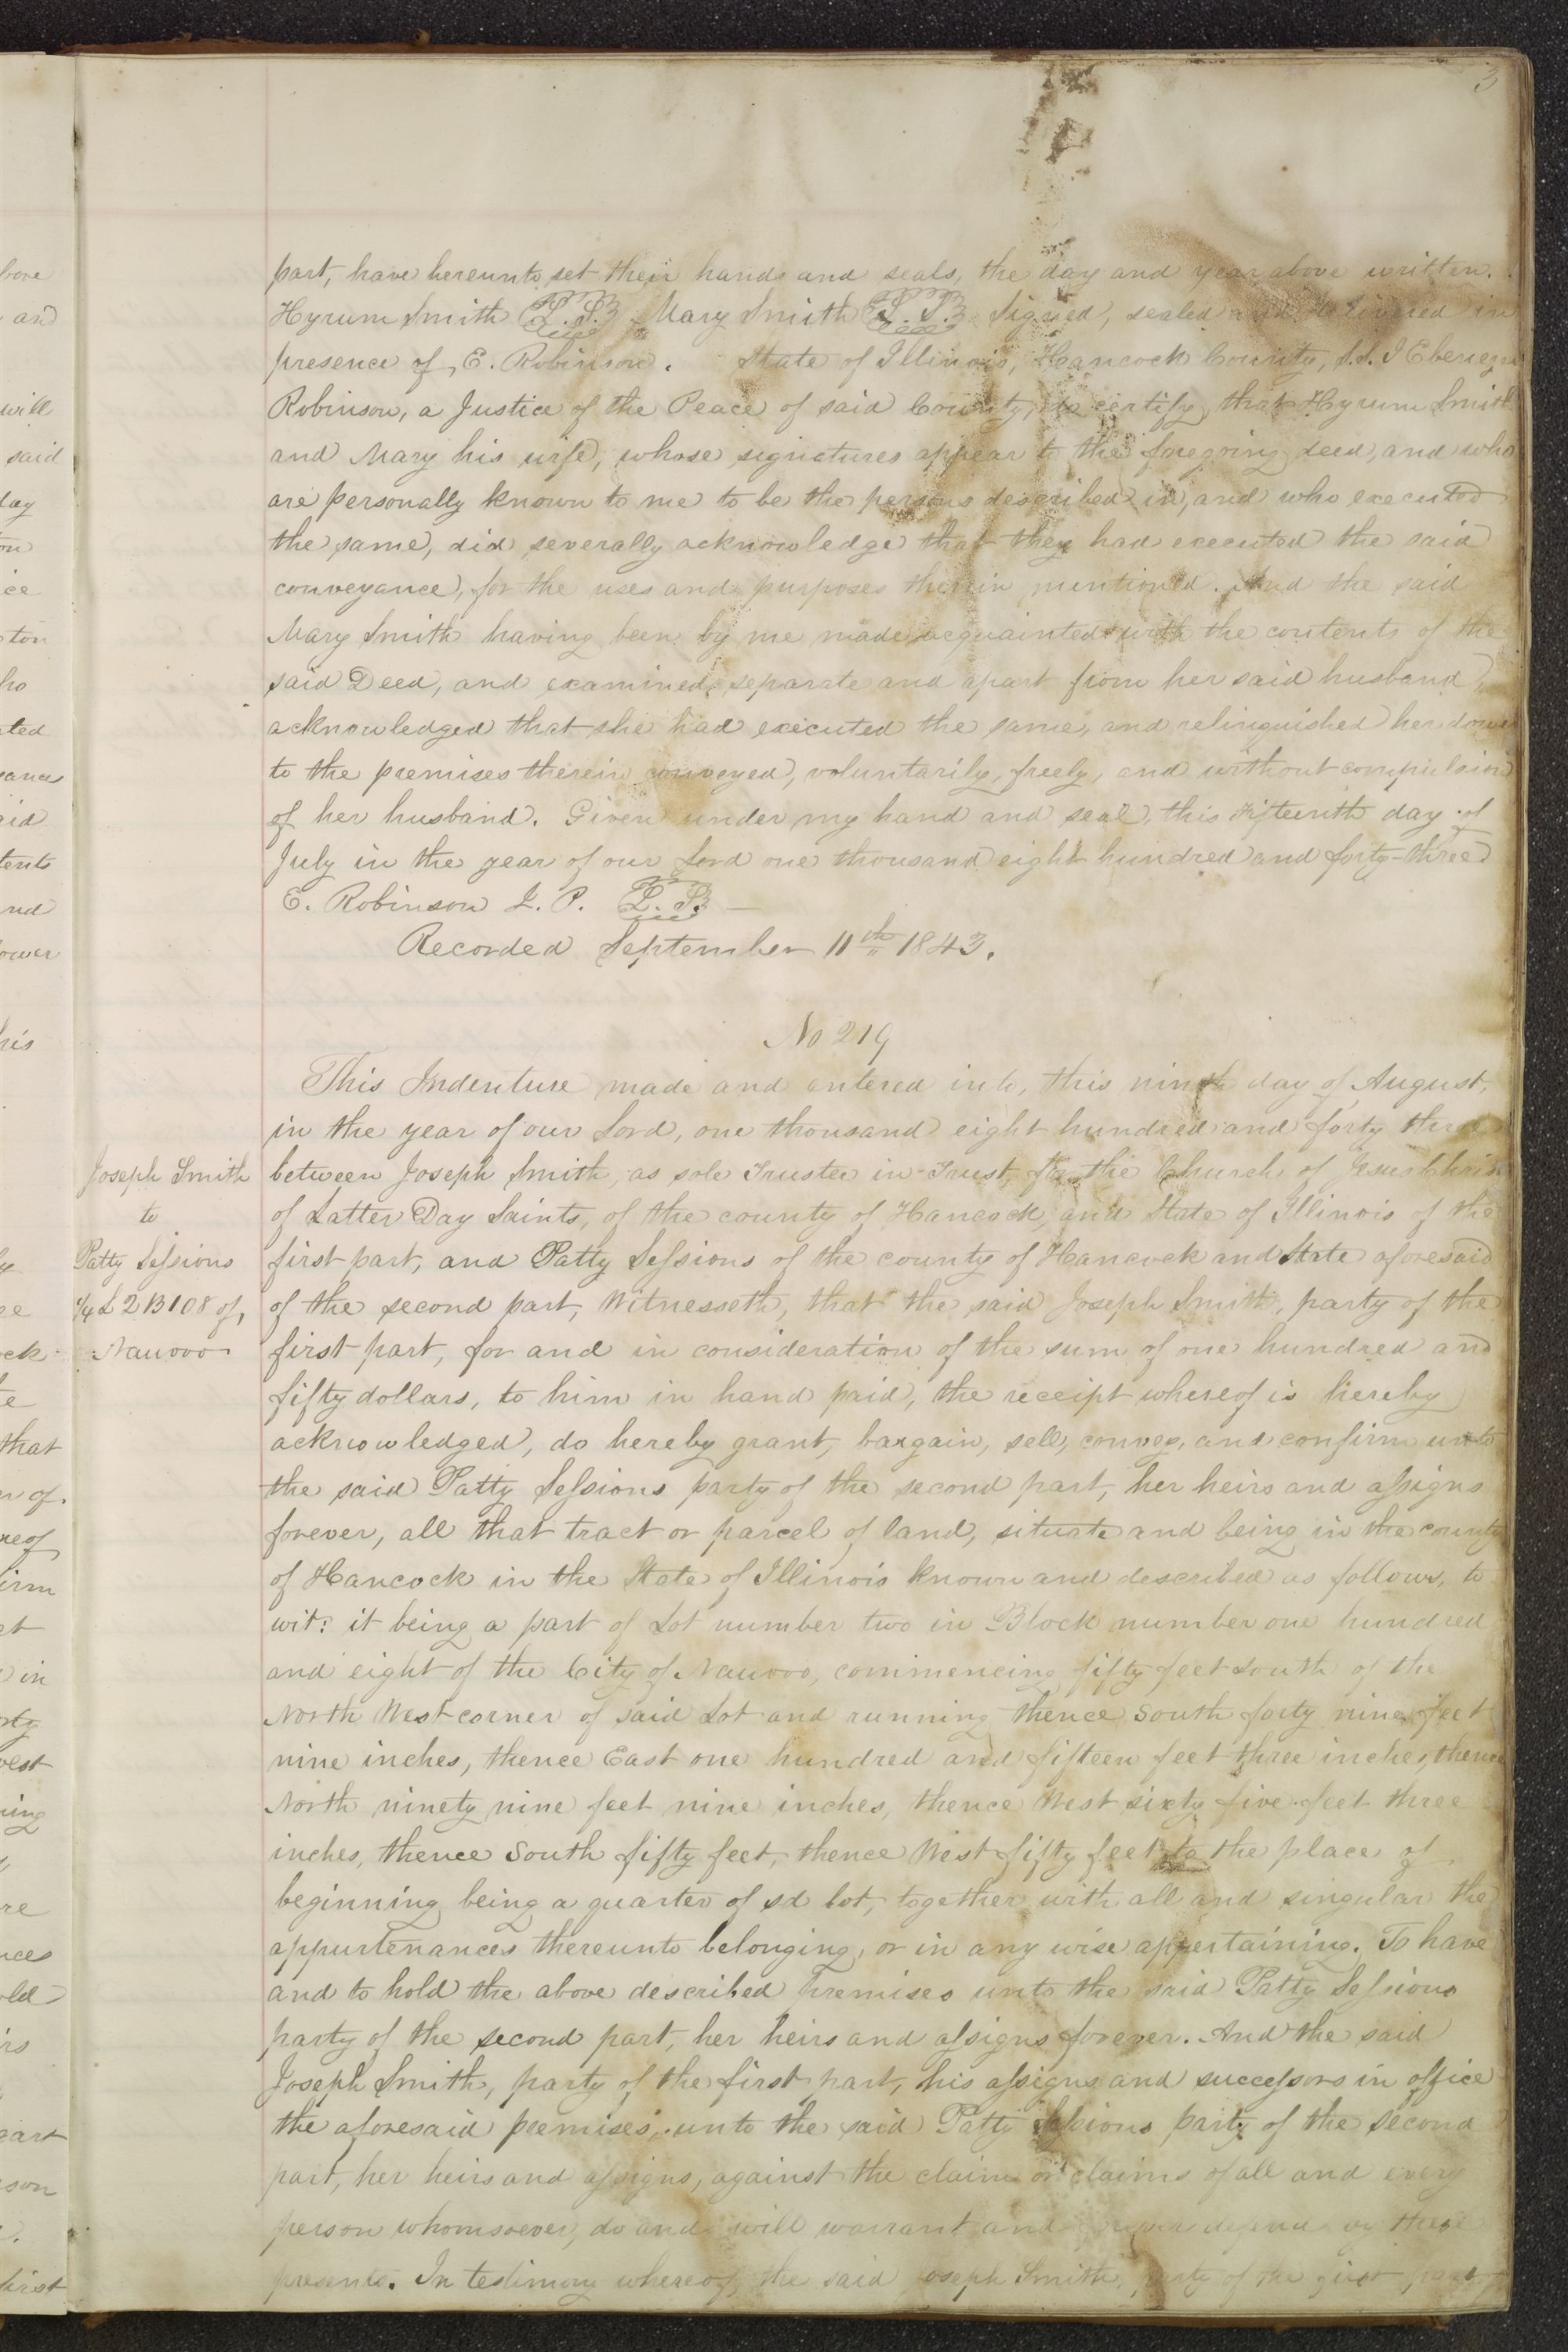 3
part, have hereunto set their hands and seals, the day and year above written.
Hyrum Smith L. S. Mary Smith L. S. Signed, sealed and delivered in
presence of, E. Robinson. State of Illinois, Hancock County, S.S. I Ebenezer
Robinson, a Justice of the Peace of said County, do certify, that Hyrum Smith
and Mary his wife, whose signatures appear to the foregoing deed, and who
are personally known to me to be the persons described in, and who executed
the same, did severally acknowledge that they had executed the said
conveyance, for the uses and purposes therein mentioned. And the said
Mary Smith having been by me made acquainted with the contents of the
said Deed, and examined, separate and apart from her said husband,
acknowledged that she had executed the same, and relinquished her dower
to the premises therein conveyed, voluntarily, freely, and without compulsion
of her husband. Given under my hand and seal, this fifteenth day of
July in the year of our Lord one thousand eight hundred and forty-three
E. Robinson J. P. L. S.
Recorded September 11th 1843.
No 219
This Indenture made and entered into, this ninth day of August,
in the year of our Lord, one thousand eight hundred and forty three
between Joseph Smith, as sole Trustee in Trust, for the Church of Jesus Christ
of Latter Day Saints, of the county of Hancock, and State of Illinois of the
first part, and Patty Sessions of the county of Hancock and State aforesaid
of the second part, Witnesseth, that the said Joseph Smith, party of the
first part, for and in consideration of the sum of one hundred and
fifty dollars, to him in hand paid, the receipt whereof is hereby
acknowledged, do hereby grant, bargain, sell, convey, and confirm unto
the said Patty Sessions party of the second part, her heirs and assigns
forever, all that tract or parcel of land, situate and being in the county
of Hancock in the State of Illinois known and described as follows, to
wit: it being a part of Lot number two in Block number one hundred
and eight of the City of Nauvoo, commencing fifty feet south of the
North West corner of said Lot and running thence South forty nine feet
nine inches, thence East one hundred and fifteen feet three inches, thence
North ninety nine feet nine inches, thence West sixty five feet three
inches, thence South fifty feet, thence West fifty feet to the place of
beginning being a quarter of sd lot, together with all and singular the
appurtenances thereunto belonging, or in any wise appertaining. To have
and to hold the above described premises unto the said Patty Sessions
party of the second part, her heirs and assigns forever. And the said
Joseph Smith, party of the first part, his assigns and successors in office
the aforesaid premises, unto the said Patty Sessions party of the second
part, her heirs and assigns, against the claim or claims of all and every
person whomsoever, do and will warrant and forever defend by these
presents. In testimony whereof, the said Joseph Smith, party of the first part,
Joseph Smith
to
Patty Sessions
1/4 L 2 B 108 of,
Nauvoo